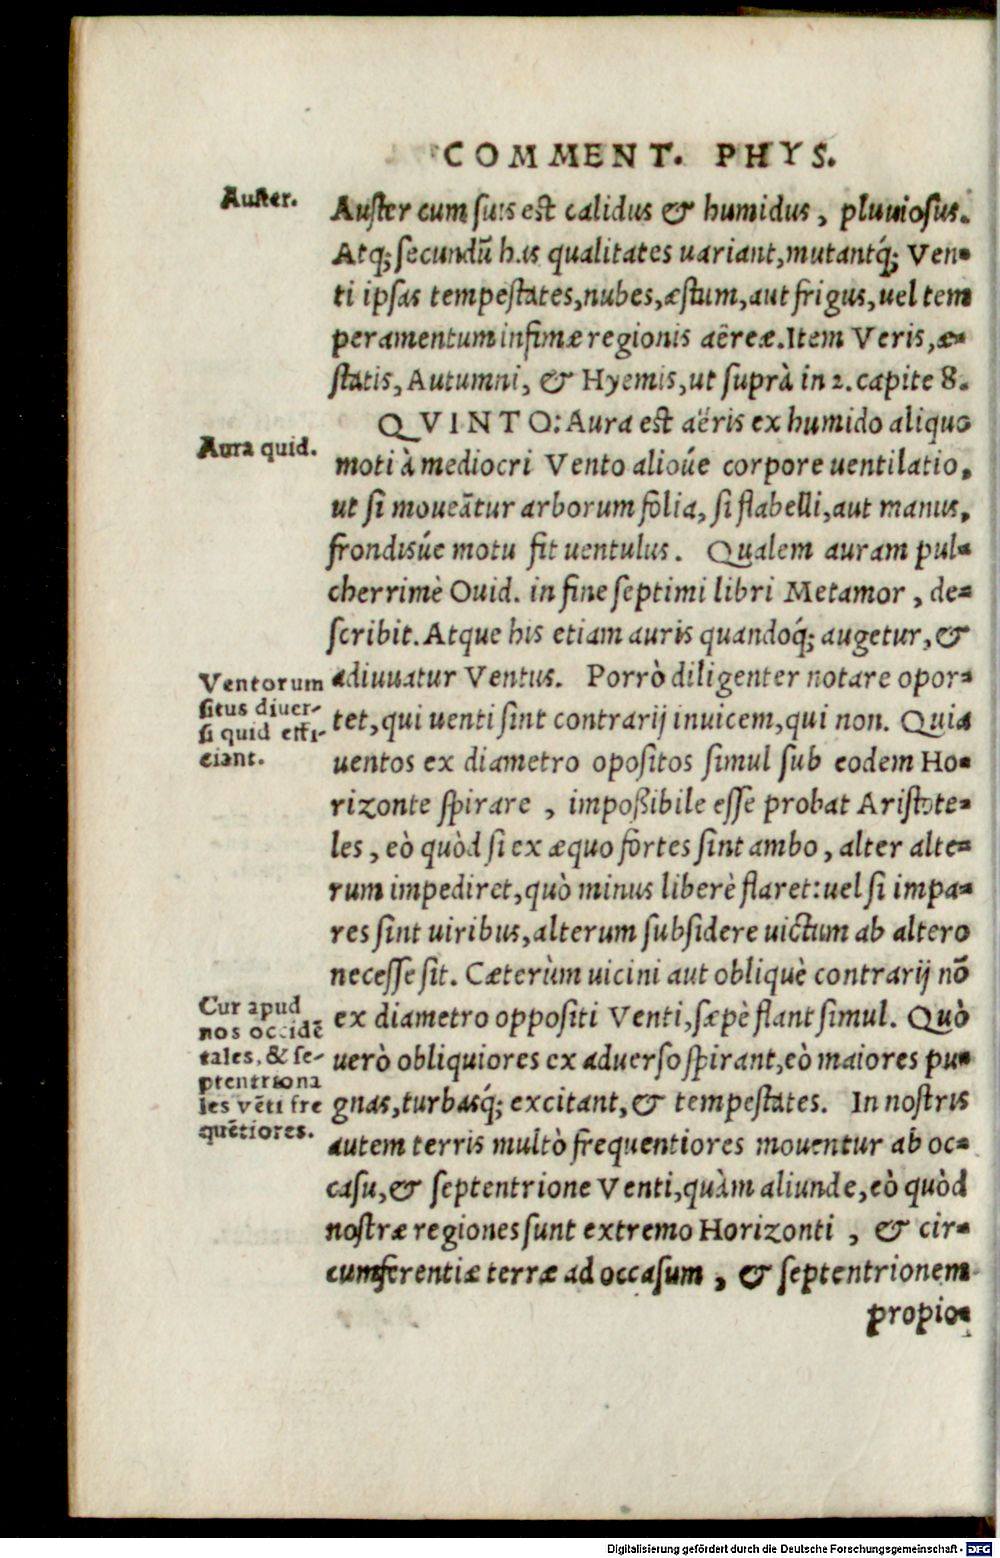 COMMENT. PHYS.
Auster.
Auſter cum ſuis eſt calidus & humidus, pluuioſus.
Atq; ſecundũ has qualitates uariant, mutantq́; Ven-
ti ipſas tempeſtates, nubes, æſtum, aut frigus, uel tem
peramentum infimæ regionis aëreæ. Item Veris, æ-
ſtatis, Autumni, & Hyemis, ut ſuprà in 2. capite 8.
Aura quid.
QVINTO: Aura eſt aëris ex humido aliquo
moti à mediocri Vento alioúe corpore uentilatio,
ut ſi moueãtur arborum folia, ſi flabelli, aut manus,
frondisúe motu fit uentulus. Qualem auram pul-
cherrimè Ouid. in fine ſeptimi libri Metamor, de-
ſcribit. Atque his etiam auris quandoq́; augetur, &
Ventorum
ſitus diuer-
ſi quid effi-
ciant.
adiuuatur Ventus. Porrò diligenter notare opor-
tet, qui uenti ſint contrarij inuicem, qui non. Quia
uentos ex diametro opoſitos ſimul ſub eodem Ho-
rizonte ſpirare, impoßibile eſſe probat Ariſtote-
les, eò quòd ſi ex æquo fortes ſint ambo, alter alte-
rum impediret, quò minus liberè flaret: uel ſi impa-
res ſint uiribus, alterum ſubſidere uictum ab altero
neceſſe ſit. Cæterùm uicini aut obliquè contrarij nõ
Cur apud
nos occidẽ
tales, & ſe-
ptentriona
les vẽti fre
quẽtiores.
ex diametro oppoſiti Venti, ſæpè flant ſimul. Quò
uerò obliquiores ex aduerſo ſpirant, eò maiores pu-
gnas, turbasq́; excitant, & tempeſtates. In noſtris
autem terris multò frequentiores mouentur ab oc-
caſu, & ſeptentrione Venti, quàm aliunde, eò quòd
noſtræ regiones ſunt extremo Horizonti, & cir-
cumferentiæ terræ ad occaſum, & ſeptentrionem
propio-
Digitalisierung gefördert durch die Deutsche Forschungsgemeinschaft - DFG